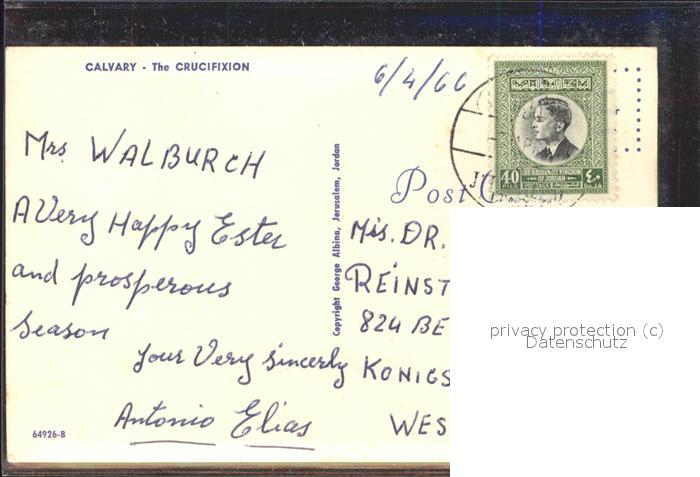 CALVARY - The CRUCIFIXION
6/4/66
Mrs WALBURCH
A Very Happy Ester
and prosperous
Season
Your Very Sincerly
Antonio Elias
64926-B
Copyright George Albina, Jerusalem, Jordan
Post C
40 FILS
THE HASHEMITE KINGDOM
OF JORDAN
POSTAGE
٤٠
Mis. DR.
REINST
824 BE
KONIGS
WES
privacy protection (c)
Datenschutz